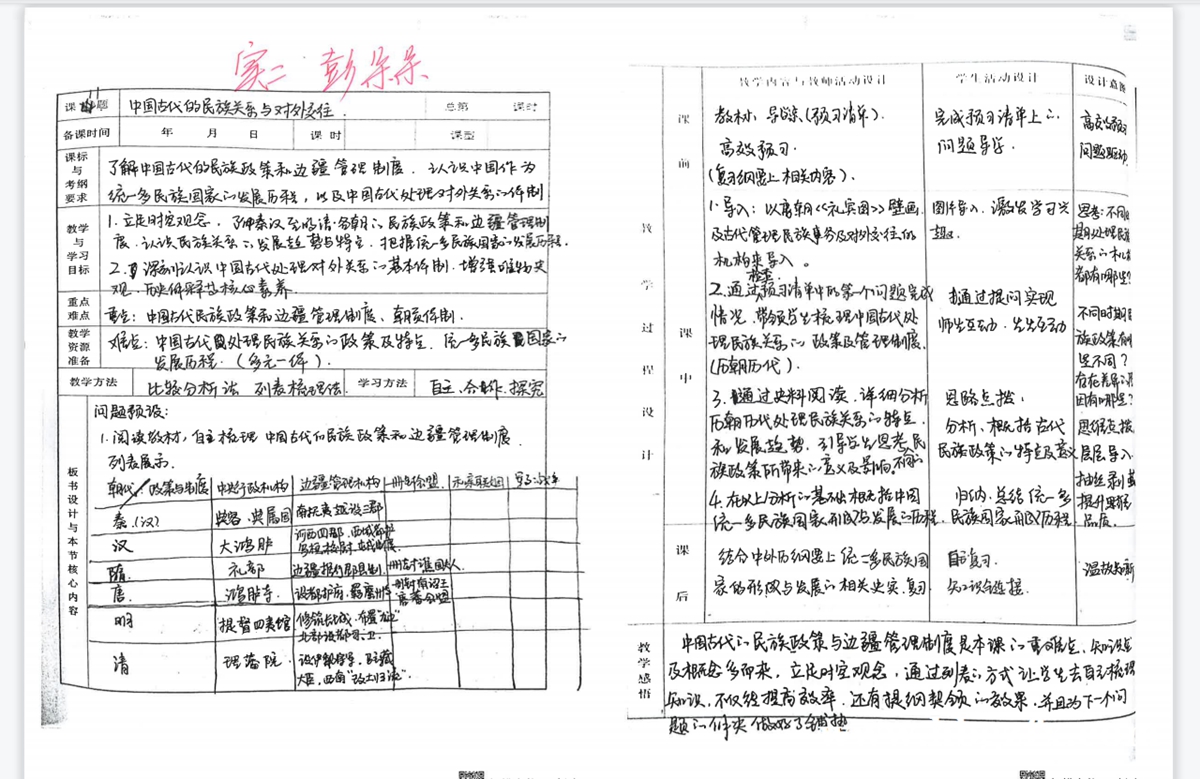 实二 彭朵朵
课题 中国古代的民族关系与对外交往. 总第 课时
备课时间 年 月 日 课时 课型
课标与考纲要求
了解中国古代的民族政策和边疆管理制度. 认识中国作为
统一多民族国家的发展历程, 以及中国古代处理对外关系的体制
教学与学习目标
1. 立足时空观念, 了解秦汉至明清各朝的民族政策和边疆管理制
度. 认识民族关系的发展趋势与特点. 把握统一多民族国家的发展历程.
2. 深刻认识中国古代处理对外关系的基本体制. 增强唯物史
观. 历史解释等核心素养.
重点难点
重点: 中国古代民族政策和边疆管理制度、朝贡体制.
教学资源准备
难点: 中国古代处理民族关系的政策及特点. 统一多民族国家的
发展历程. (多元一体).
教学方法 比较分析法 列表梳理法. 学习方法 自主、合作、探究
板书设计与本节核心内容
问题预设:
1. 阅读教材, 自主梳理 中国古代的民族政策和边疆管理制度.
列表展示.
朝代 政策与制度 中央行政机构 边疆管理机构 册封会盟 和亲联姻
秦.(汉) 典客. 典属国 南扶夷越设三郡
汉 大鸿胪 河西四郡. 西域都护
隋. 礼部 边疆推行郡县制.
唐. 鸿胪寺. 设都护府. 羁縻州
明 提督四夷馆 修筑长城,
北部设都司、卫.
清 理藩院. 设伊犁将军, 驻藏
大臣, 西南“改土归流”.
教学内容与教师活动设计 学生活动设计 设计意图
教学过程设计
课前
教材、导学案(预习清单).
高效预习.
(复习纲要上相关内容).
完成预习清单上的
问题导学.
高效预习
问题驱动
课中
1. 导入: 以唐朝《礼宾图》壁画
及古代管理民族事务及对外交往的
机构来导入.
图片导入. 激发学习兴
趣.
思考: 不同
时期处理民族
关系的机构
都有哪些?
2. 通过检查预习清单中的第一个问题完成
情况. 带领学生梳理中国古代处
理民族关系的政策及管理制度.
(历朝历代).
通过提问实现
师生互动. 生生互动
不同时期民
族政策有哪
些不同?
存在差异的原
因有哪些?
3. 通过史料阅读. 详细分析
历朝历代处理民族关系的特点
和发展趋势. 引导学生思考民
族政策所带来的意义及影响.
思路点拨.
分析、概括古代
民族政策的特点及意义
思维点拨
层层导入.
4. 在以上分析的基础概括中国
统一多民族国家形成与发展的历程.
归纳. 总结统一多
民族国家形成历程.
抽丝剥茧
提升思维
品质.
课后
结合中外历史纲要上统一多民族国
家的形成与发展的相关史实. 复习
自主复习.
知识链接.
温故知新
教学感悟
中国古代的民族政策与边疆管理制度是本课的重难点. 知识点
及概念多而杂, 立足时空观念, 通过列表的方式让学生去自主梳理
知识, 不仅能提高效率. 还有提纲挈领的效果, 并且为下一个问
题的解决做好了铺垫